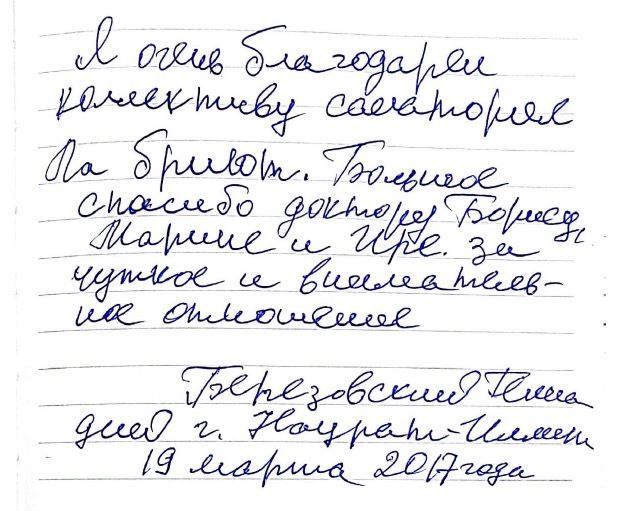 Я очень благодарен
коллективу санатория
Ла Бриют. Большое
спасибо доктору Борису,
Марине и Ире. за
чуткое и вниматель-
ное отношение
Березовский
г. Нацрат-Иллит
19 марта 2017 года